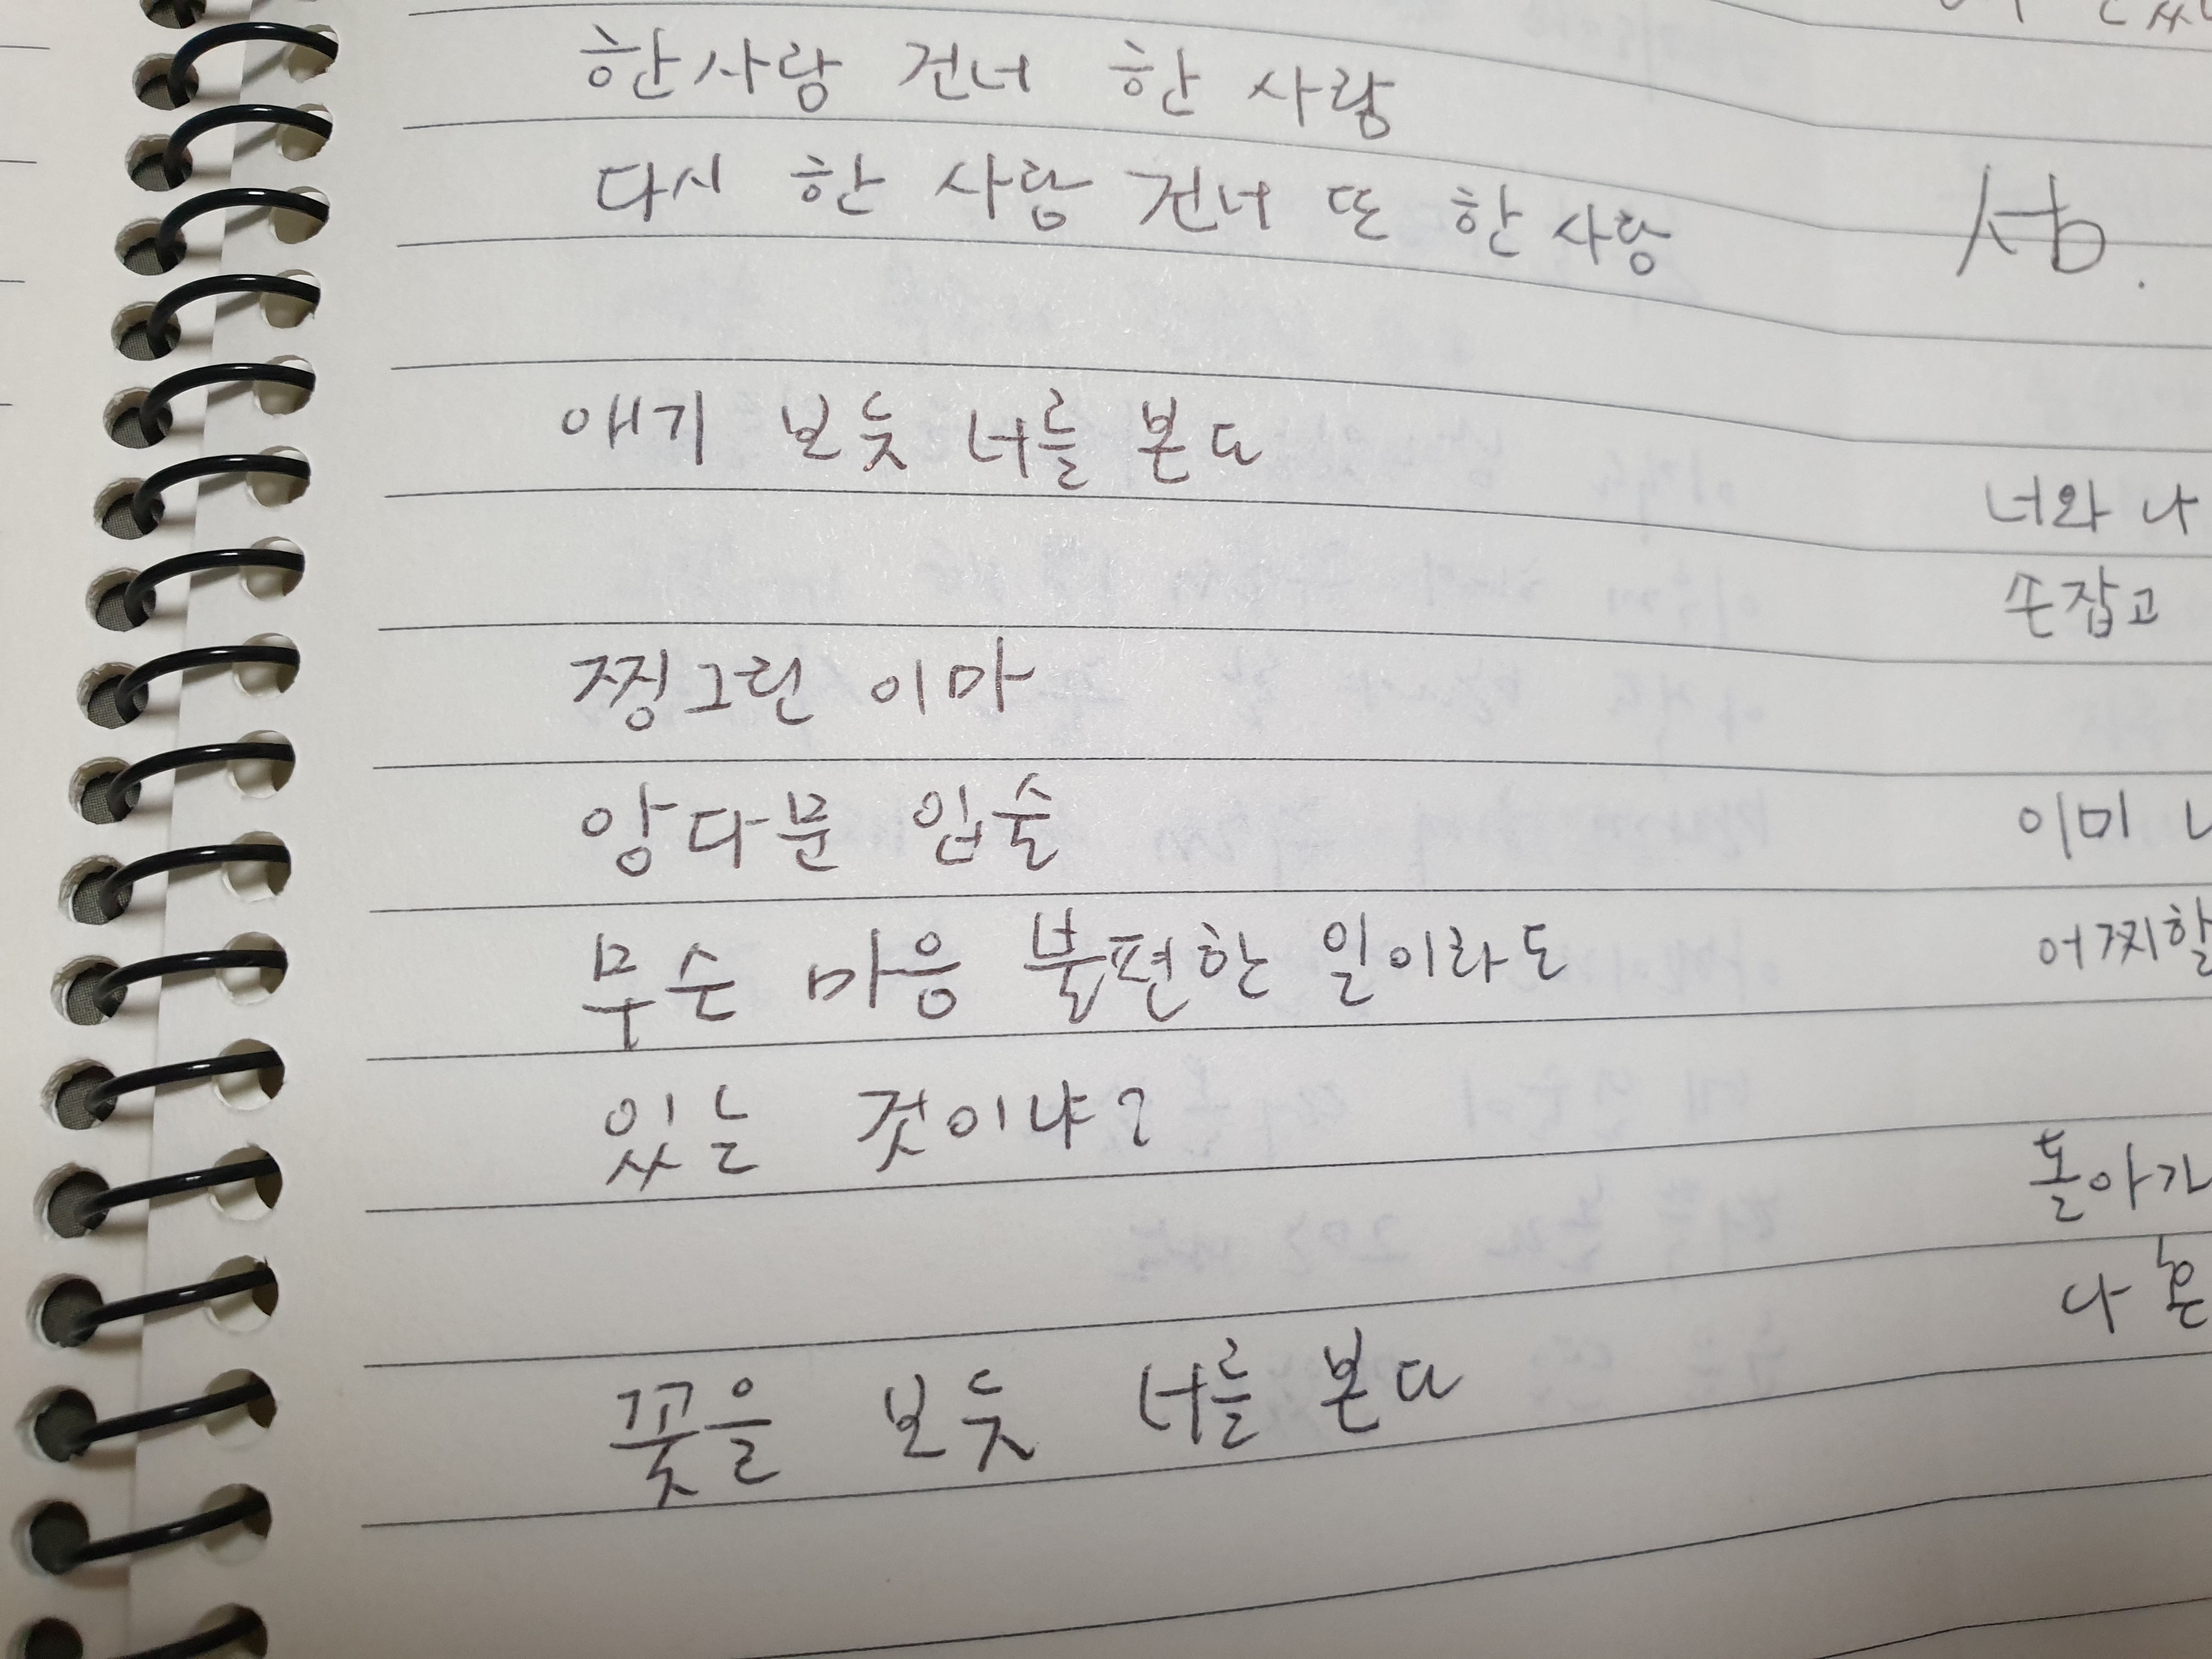 한사람 건너 한 사람
다시 한 사람 건너 또 한 사람
애기 보듯 너를 본다
찡그린 이마
앙다문 입술
무슨 마음 불편한 일이라도
있는 것이냐?
꽃을 보듯 너를 본다
섬.
너와 나
손잡고
이미
어찌할
돌아가
나 혼